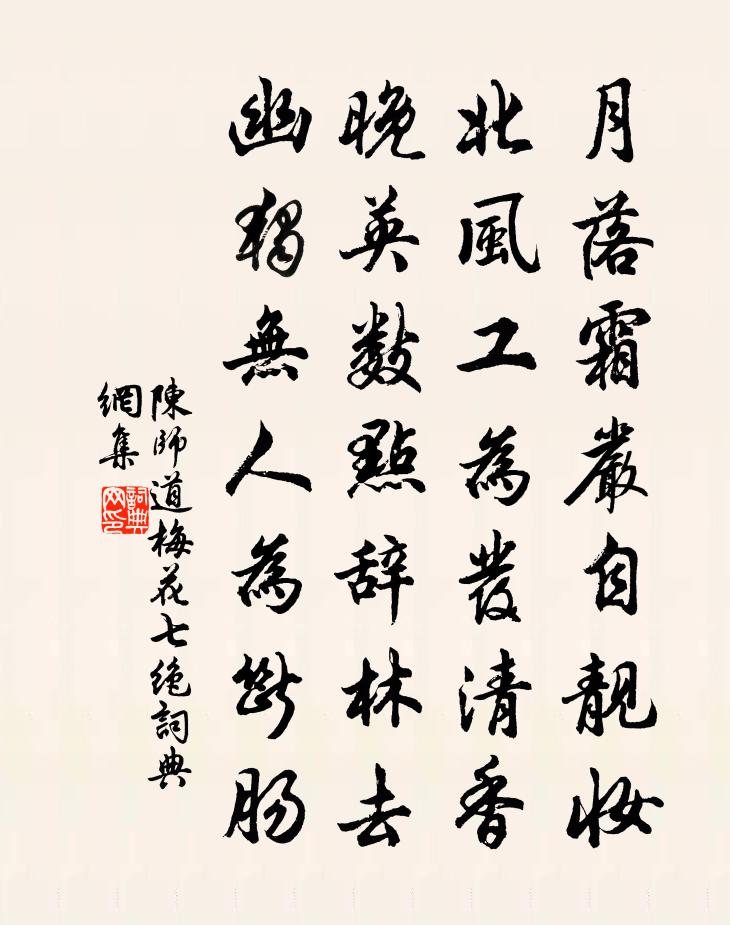 月落霜嚴自靚妝
北風工為發清香
晚英數點辞林去
幽獨無人為斷腸
陳師道梅花七絶詞典
網集
詞典
网印